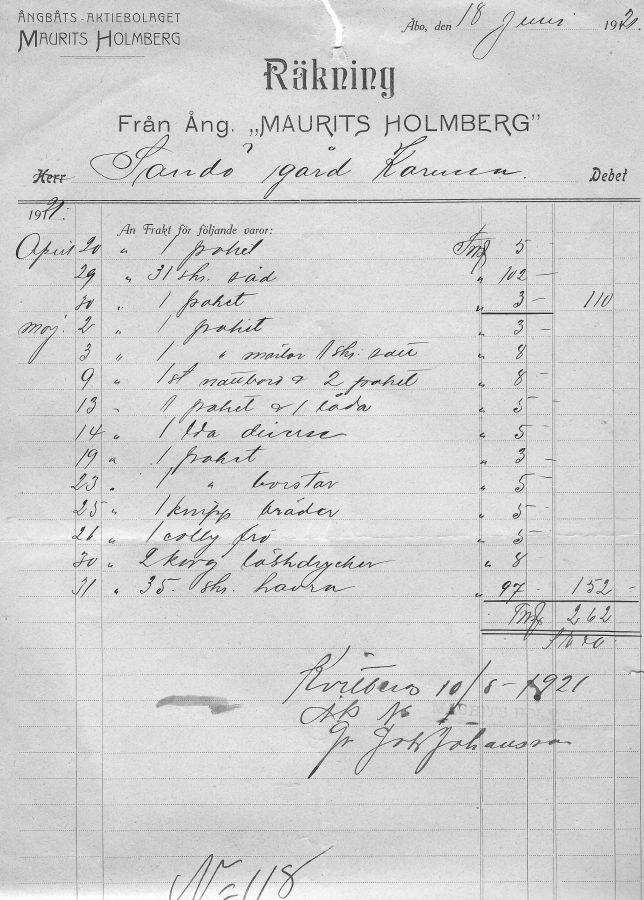 ÅNGBÅTS-AKTIEBOLAGET
MAURITS HOLMBERG
Åbo, den 18 Juni 1921.
Räkning
Från Ång. „MAURITS HOLMBERG”
Herr Sandö gård Karuna. Debet
1921.
An Frakt för följande varor:
April 20 „ 1 paket Fmk 5 —
29 „ 31 sks. säd „ 102 —
30 „ 1 paket „ 3 — 110
Maj. 2 „ 1 paket „ 3 —
3 „ 1 „ 1 sks. „ 8
9 „ 1 st nattbord & 2 paket „ 8 —
13 „ 1 paket & 1 låda „ 5 —
14 „ 1 lda diverse „ 5
19 „ 1 paket „ 3 —
23 „ 1 „ borstar „ 5
25 „ 1 knipp bräder „ 5
26 „ 1 colly frö „ 5
30 „ 2 korg läskdrycker „ 8
31 „ 35. sks. havra „ 97 - 152 —
Fmk 262
Kvitteras 10/8-1921
Johansson
N=118